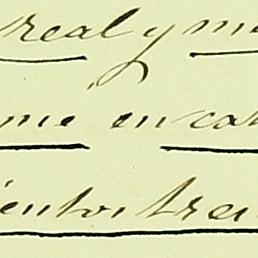 real y me
me en cat
ientos trei